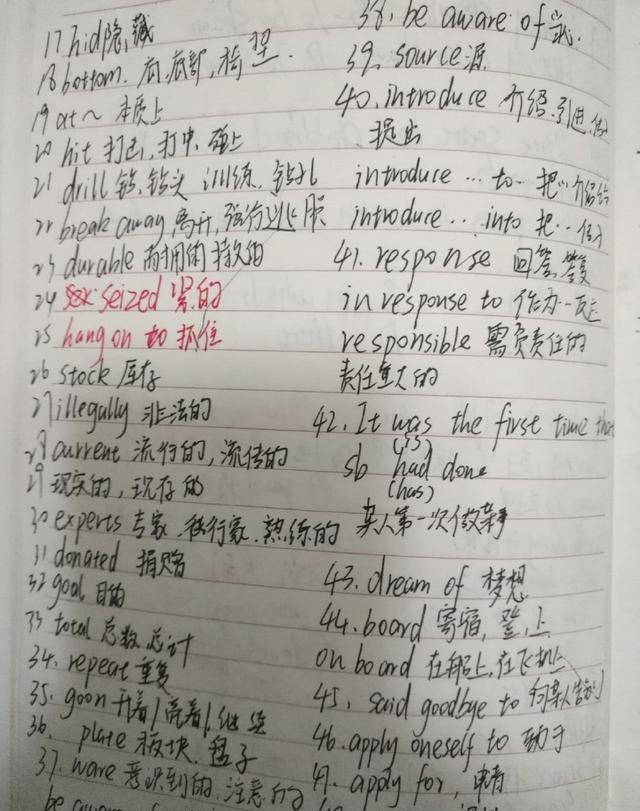 17 hid隐,藏
18 bottom. 底,底部,
19 at~ 本质上
20 hit 打击,打中,碰上
21 drill 钻,钻头 训练,钻孔
22 break away,离开,强行逃脱
23 durable 耐用的 持久的
24 seized 的
25 hang on to 抓住
26 stock 库存
27 illegally 非法的
28 current 流行的,流传的
29 现实的,现存的
30 experts 专家,行家,熟练的
31 donated 捐赠
32 goal 目的
33 total 总数 总计
34. repeat 重复
35. goon 开着/亮着/继续
36. plate 板块,盘子
37. ware 意识到的,注意的
be aware
38. be aware of
39. source源
40. introduce 介绍,引进,
提出
introduce ... to 把...介绍给
introduce ... into 把...
41. response 回答,答复
in response to 作为一
responsible 需负责任的
责任重大的
42. It was the first time
(is)
sb had done
(has)
某人第一次做某事
43. dream of 梦想
44. board 寄宿,登上
on board 在船上,在飞机上
45. said goodbye to 向某人告别
46. apply oneself to 致力于
47. apply for, 申请